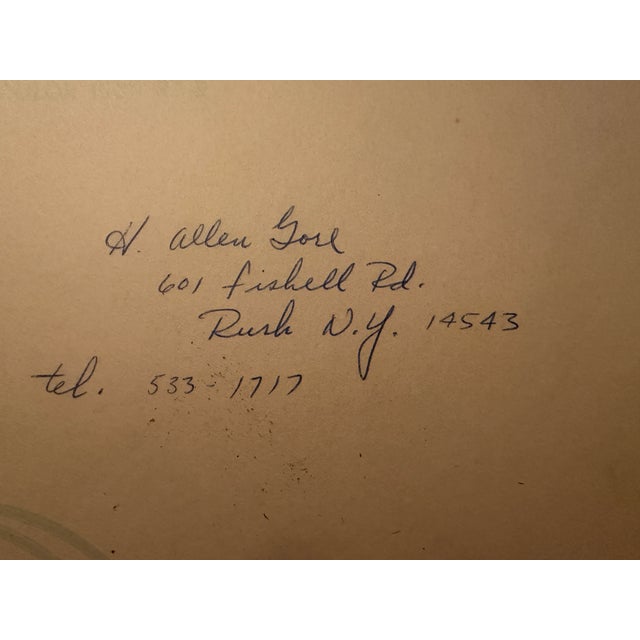 H. Allen Gore
601 Fishell Rd.
Rush N.Y. 14543
tel. 533-1717